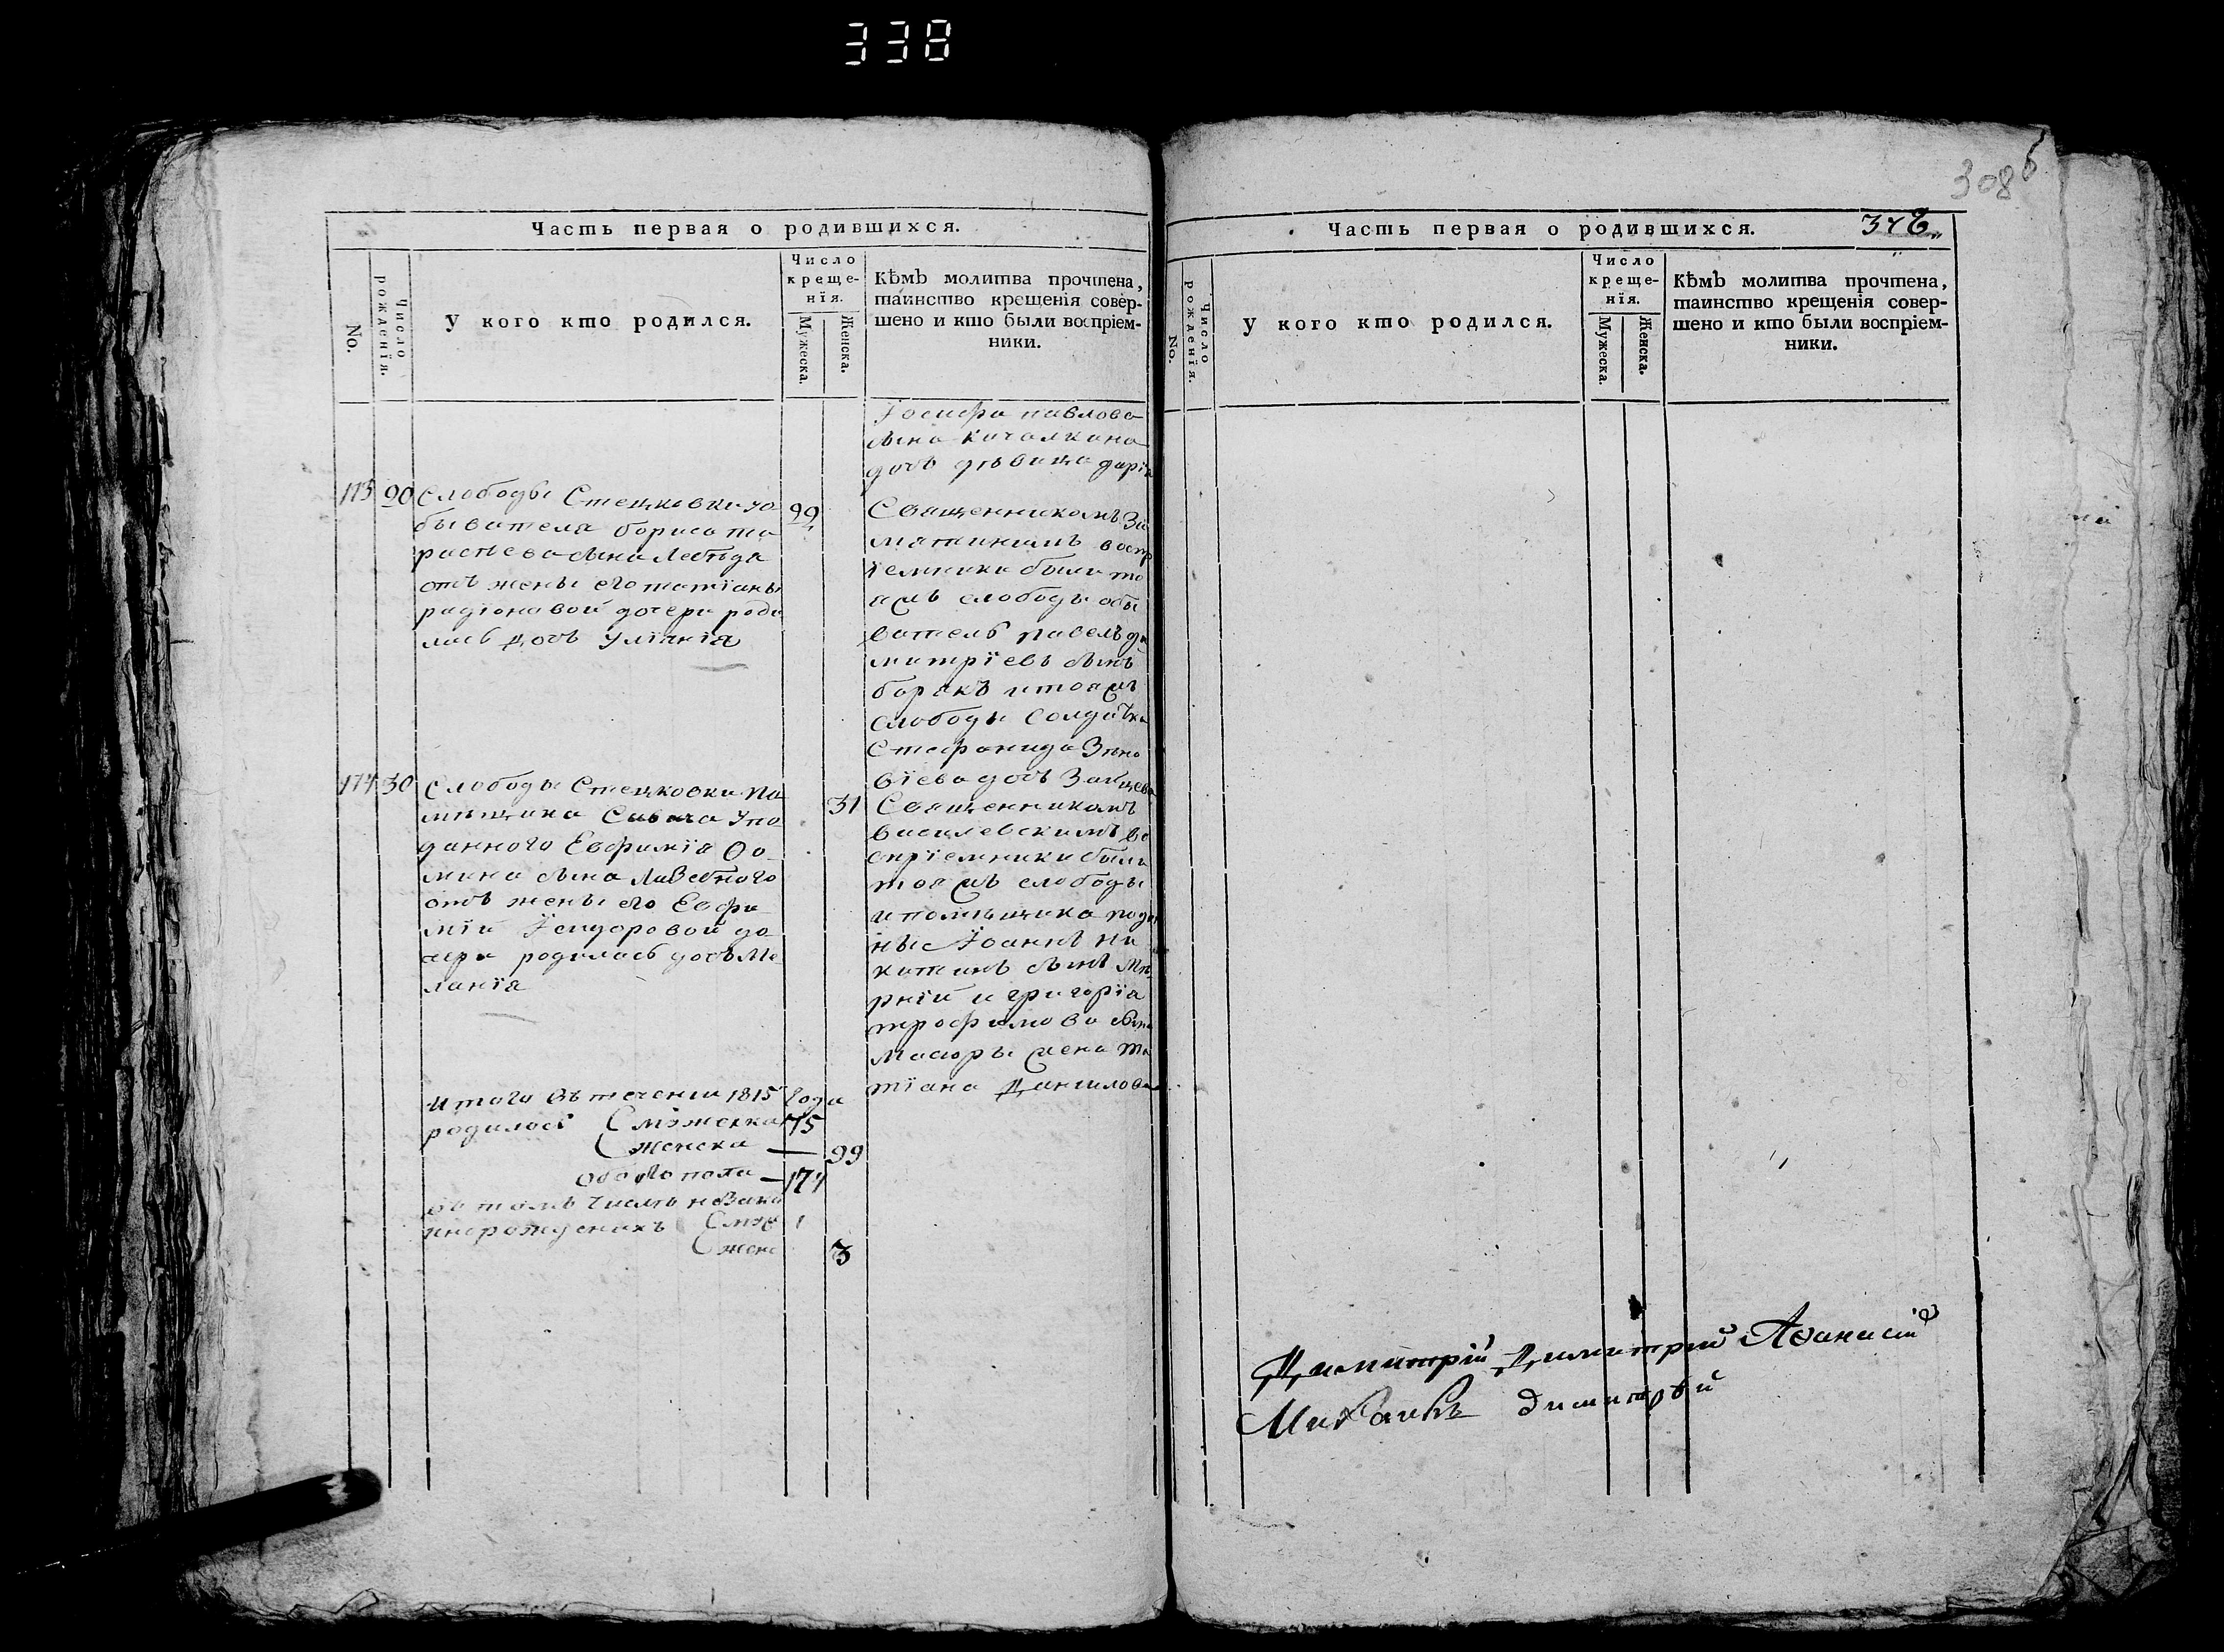 338
308б
Часть первая о родившихся.
No.
Число рожденїя.
у кого кто родился.
Число
креще-
нїя.
Мужеска.
Женска.
Кѣмъ молитва прочтена,
таинство крещенїя совер-
шено и кто были воспрїем-
ники.
Їосифа павлова
сына качалкина
дочь дѣвица дарїя
173 90 Слободы Стецковки
бывателя бориса та
расїева сына Лебѣдя
отъ жены его татїаны
радїоновой дочери роди
лась дочь Улїянїя
99
Священникомъ За
мятинимъ воспр
їемники были то
яжъ слободы обы
ватель павелъ ди
митрїевъ сынъ
борякъ и тояжъ
слободы солдатка
Стефанида Зѣно
вїева дочь Зайцева
174 30 Слободы Стецковки по
мѣщика Савича
данного Евфимїя Ѳо
мина сына
отъ жены его Евфи
мїи Їсидоровой до
чери родилась дочь Ме
ланїя
31
Священникомъ
василевскимъ во
спрїемники были
тояжъ слободы
и помѣщика подан
ные Їоаннъ ни
китинъ сынъ
и григорїя
трофимова сына
жена та
тїана Данилова
Итого въ теченїи 1815 года
родилось мужеска 75
женска — 99
обоего пола — 174
въ томъ числѣ незако
ннорожденихъ муж 1
жен 3
Часть первая о родившихся.
No.
Число рожденїя.
у кого кто родился.
Число
креще-
нїя.
Мужеска.
Женска.
Кѣмъ молитва прочтена,
таинство крещенїя совер-
шено и кто были воспрїем-
ники.
Димитрїй Димитрий Аѳанасїй
Михаилъ димитрїй